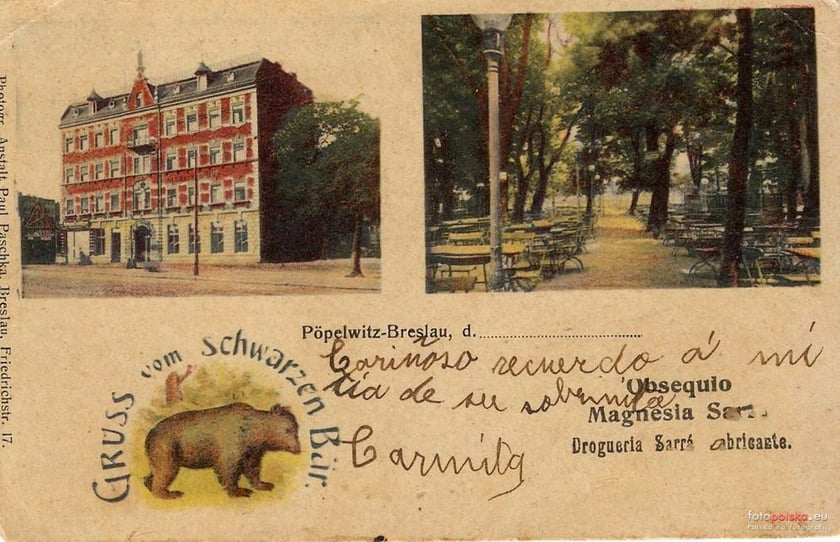 Photogr. Anstalt Paul Paschka, Breslau, Friedrichstr. 17.
Pöpelwitz-Breslau, d.
Gruss vom Schwarzen Bär.
Cariñoso recuerdo á mi
tia de su sobrinita
Carmita
Obsequio
Magnesia
Drogueria Sarrá
fotopolska.eu
Polska na fotografii